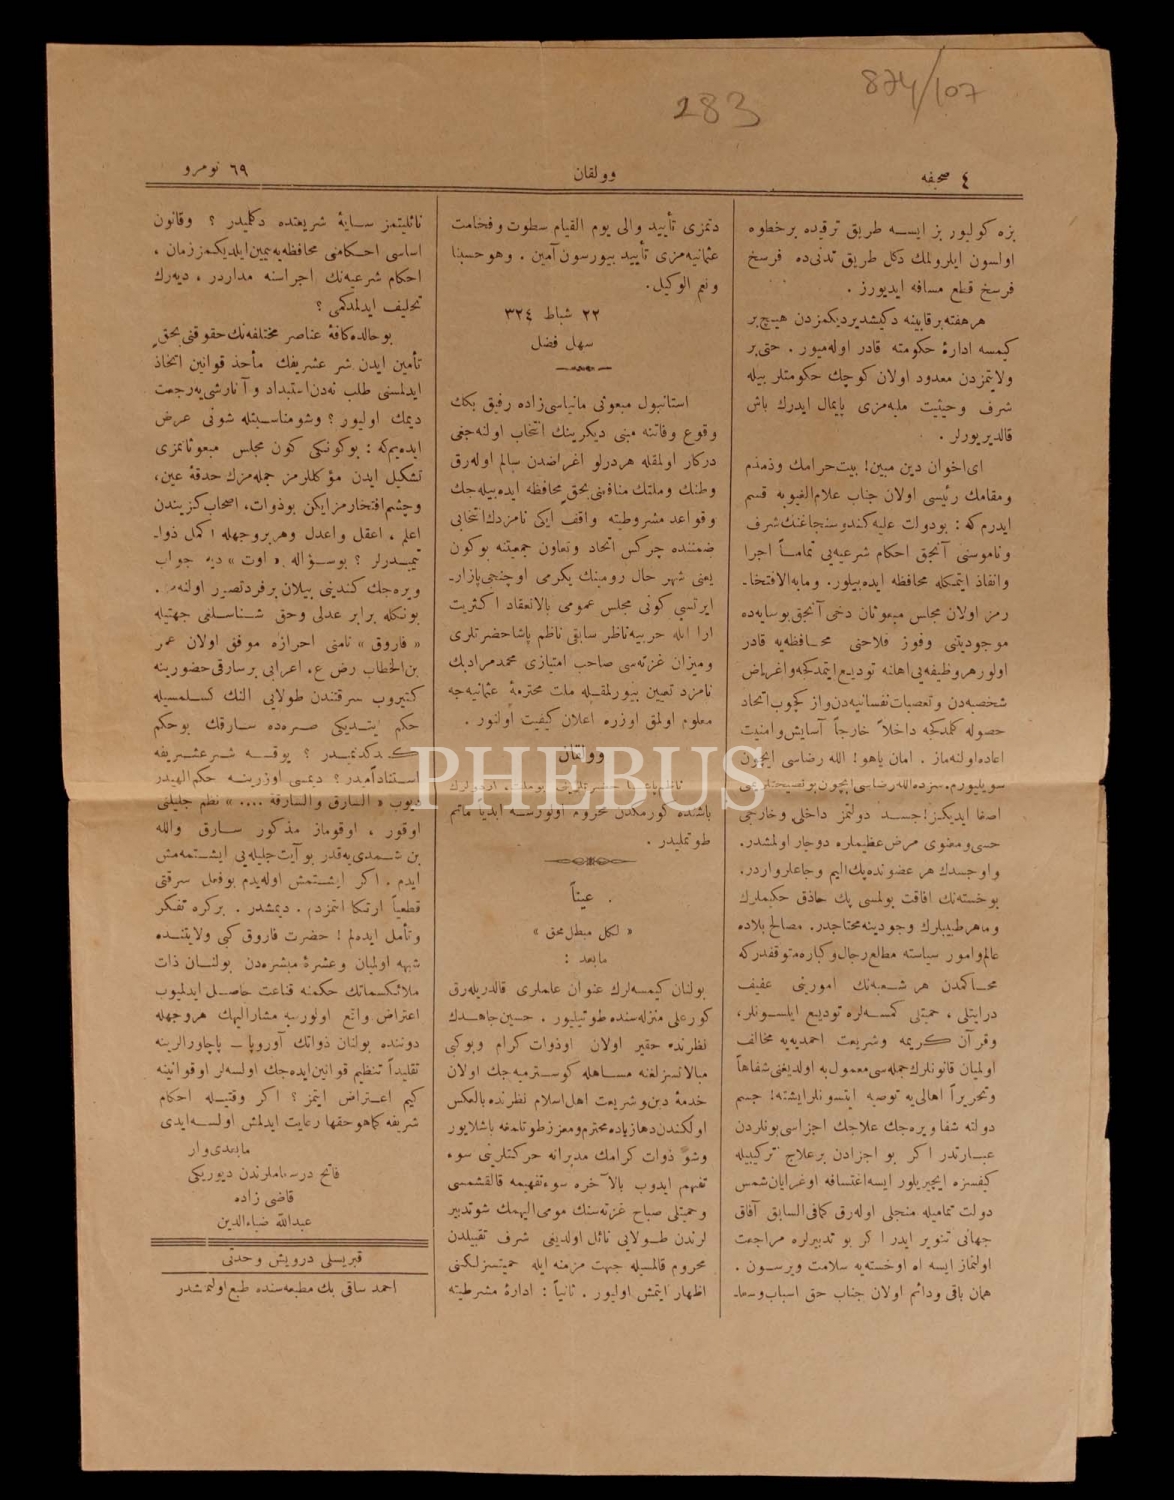 283
874/107
٤ صحيفه
وولقان
٦٩ نومرو
بزه كوليور بز ايسه طريق ترقيده بر خطوه
اولسون ايلرولمك دكل طريق تدنی ده فرسخ
فرسخ قطع مسافه ايديورز .
هر هفته بر قابينه دكيشديرديكمزدن هيچ بر
كيمسه ادارۀ حكومته قادر اوله ميور . حتی بر
ولايتمزدن معدود اولان كوچك حكومتلر بيله
شرف وحيثيت مليه مزی پايمال ايدرك باش
قالديريورلر .
ای اخوان دين مبين! بيت حرامك وزمزم
ومقامك رئيسی اولان جناب علام الغيوبه قسم
ايدرم كه : بو دولت عليه كندوسنجاغنك شرف
وناموسنی آنجق احكام شرعيه يی تماماً اجرا
وانفاذ ايتمكله محافظه ايده بيلور . وما به الافتخا-
رمز اولان مجلس مبعوثان دخی آنجق بو سايه ده
موجوديتنی وفوز فلاحنی محافظه يه قادر
اولور هر وظيفه يی اهلنه توديع ايتمدكجه واغراض
شخصيه دن وتعصبات نفسانيه دن واز كچوب اتحاد
حصوله كلمدكجه داخلاً خارجاً آسايش وامنيت
اعاده اولنه ماز . امان ياهو! الله رضاسی ايچون
سويليورم . سزده الله رضاسی ايچون بو نصيحتلريمی
اصغا ايديكز! جسد دولتمز داخلی وخارجی
حسی ومعنوی مرض عظيمله دوچار اولمشدر .
واو جسدك هر عضونده بك اليم وجاعلر واردر .
بو خسته نك افاقت بولمسی پك حاذق حكيملرك
وماهر طبيبلرك وجودينه محتاجدر . مصالح بلاده
عالم وامور سياسته مطلع رجال وكباره متوقفدر كه
محاكمدن هر شعبه نك امورينی عفيف
درايتلی ، حميتلی كمسه لره توديع ايلسونلر ،
وقرآن كريمه وشريعت احمديه يه مخالف
اولميان قانونلرك جمله سی معمول به اولديغنی شفاهاً
وتحريراً اهالی يه توصيه ايتسونلر ايشته! جسم
دولته شفا ويره جك علاجك اجزاسی بونلردن
عبارتدر اكر بو اجزادن بر علاج تركيبيله
كيفسزه ايچيريلور ايسه اغتسافه اوغرايان شمس
دولت تماميله منجلی اوله رق كما فی السابق آفاق
جهانی تنوير ايدر اكر بو تدبيرلره مراجعت
اولنماز ايسه اه او خسته يه سلامت ويرسون .
همان باقی ودائم اولان جناب حق اسباب وسعا-
دتمزی تأييد والی يوم القيام سطوت وفخامت
عثمانيه مزی تأييد بيورسون آمين . وهو حسبنا
ونعم الوكيل .
٢٢ شباط ٣٢٤
سهل فضل
استانبول مبعوثی مانياسی زاده رفيق بكك
وقوع وفاتنه مبنی ديكرينك انتخاب اولنه جغی
دركار اولمغله هر درلو اغراضدن سالم اوله رق
وطنك وملتك منافعنی بحق محافظه ايده بيله جك
وقواعد مشروطيته واقف ايكی نامزدك انتخابی
ضمننده چركس اتحاد وتعاون جمعيتنه بوكون
يعنی شهر حال رومينك يكرمی اوچنجی پازار-
ايرتسی كونی مجلس عمومی بالانعقاد اكثريت
ارا ايله حربيه ناظر سابقی ناظم پاشا حضرتلری
وميزان غزته سی صاحب امتيازی محمد مراد بك
نامزد تعيين بيورلمغله ملت محترمۀ عثمانيه جه
معلوم اولمق اوزره اعلان كيفيت اولنور .
وولقان
باشنده كورمكدن محروم اولورسه ابدياً ماتم
طوتمليدر .
عيناً
« لكل مبطل محق »
مابعد :
بولنان كيمسه لرك عنوان عاملری قالديريله رق
كور علی منزله سنده طوتيليور . حسين جاهدك
نظرنده حقير اولان اوذوات كرام وبوكبی
مبالاتسزلغنه مساهله كوسترميه جك اولان
خدمۀ دين وشريعت اهل اسلام نظرنده بالعكس
اولكندن دها زياده محترم ومعزز طوتلمغه باشلايور
وشو ذوات كرامك مدبرانه حركتلرينی سوء
تفهم ايدوب بالآخره سوء تفهيمه قالقشمسی
وحميتلی صباح غزته سنك مومی اليهمك شو تدبير
لرندن طولايی نائل اولديغی شرف تقبيلدن
محروم قالمسيله جهت مزمنه ايله حميتسزلكنی
اظهار ايتمش اوليور . ثانياً : ادارۀ مشرطيته
نائليتمز سايۀ شريعتده دكلميدر ؟ وقانون
اساسی احكامنی محافظه يه يمين ايلديكمز زمان ،
احكام شرعيه نك اجراسنه مداردر ، ديه رك
تحليف ايدلمدكمی ؟
بو حالده كافۀ عناصر مختلفه نك حقوقنی بحق
تأمين ايدن شرع شريفك مأخذ قوانين اتخاذ
ايدلمسنی طلب نه دن استبداد وآنارشی يه رجعت
ديمك اوليور ؟ وشو مناسبتله شونی عرض
ايده يم كه : بوكونكی كون مجلس مبعوثانمزی
تشكيل ايدن مؤكللرمز جمله مزك حدقۀ عين ،
وچشم افتخارمز ايكن بو ذوات ، اصحاب كزيندن
اعلم ، اعقل واعدل وهر بر وجهله اكمل ذوا-
تميدرلر ؟ بو سؤاله « اوت » ديه جواب
ويره جك كندينی بيلان بر فرد تصور اولنه مز .
بونكله برابر عدلی وحق شناسلغی جهتيله
« فاروق » نامنی احرازه موفق اولان عمر
بن الخطاب رضی ع . اعرابی بر سارقی حضورينه
كتيروب سرقتندن طولايی النك كسلمسيله
حكم ايتديكی صره ده سارقك بو حكم
كندكميدر ؟ يوقسه شرع شريفه
استناداًميدر ؟ ديمسی اوزرينه حكم الهيدر
ديوب « السارق والسارقة .... » نظم جليلنی
اوقور ، اوقوماز مذكور سارق والله
بن شمدی يه قدر بو آيت جليله يی ايشتمه مش
ايدم . اكر ايشتمش اوله يدم بو فعل سرقتی
قطعياً ارتكاب ايتمزدم . ديمشدر . بر كره تفكر
وتأمل ايده لم! حضرت فاروق كبی ولايتنده
شبهه اولميان وعشرۀ مبشره دن بولنان ذات
ملائكسماتك حكمنه قناعت حاصل ايدلميوب
اعتراض واقع اولورسه مشار اليهك هر وجهله
دوننده بولنان ذواتك آوروپا — پاچاورالرينه
تقليداً تنظيم قوانين ايده جك اولسه لر او قوانينه
كيم اعتراض ايتمز ؟ اكر وقتيله احكام
شريفه كما هو حقها رعايت ايدلمش اولسه ايدی
مابعدی وار
فاتح درسعاملرندن ديوريكی
قاضی زاده
عبدالله ضياءالدين
قبريسلی درويش وحدتی
احمد ساقی بك مطبعه سنده طبع اولنمشدر
PHEBUS